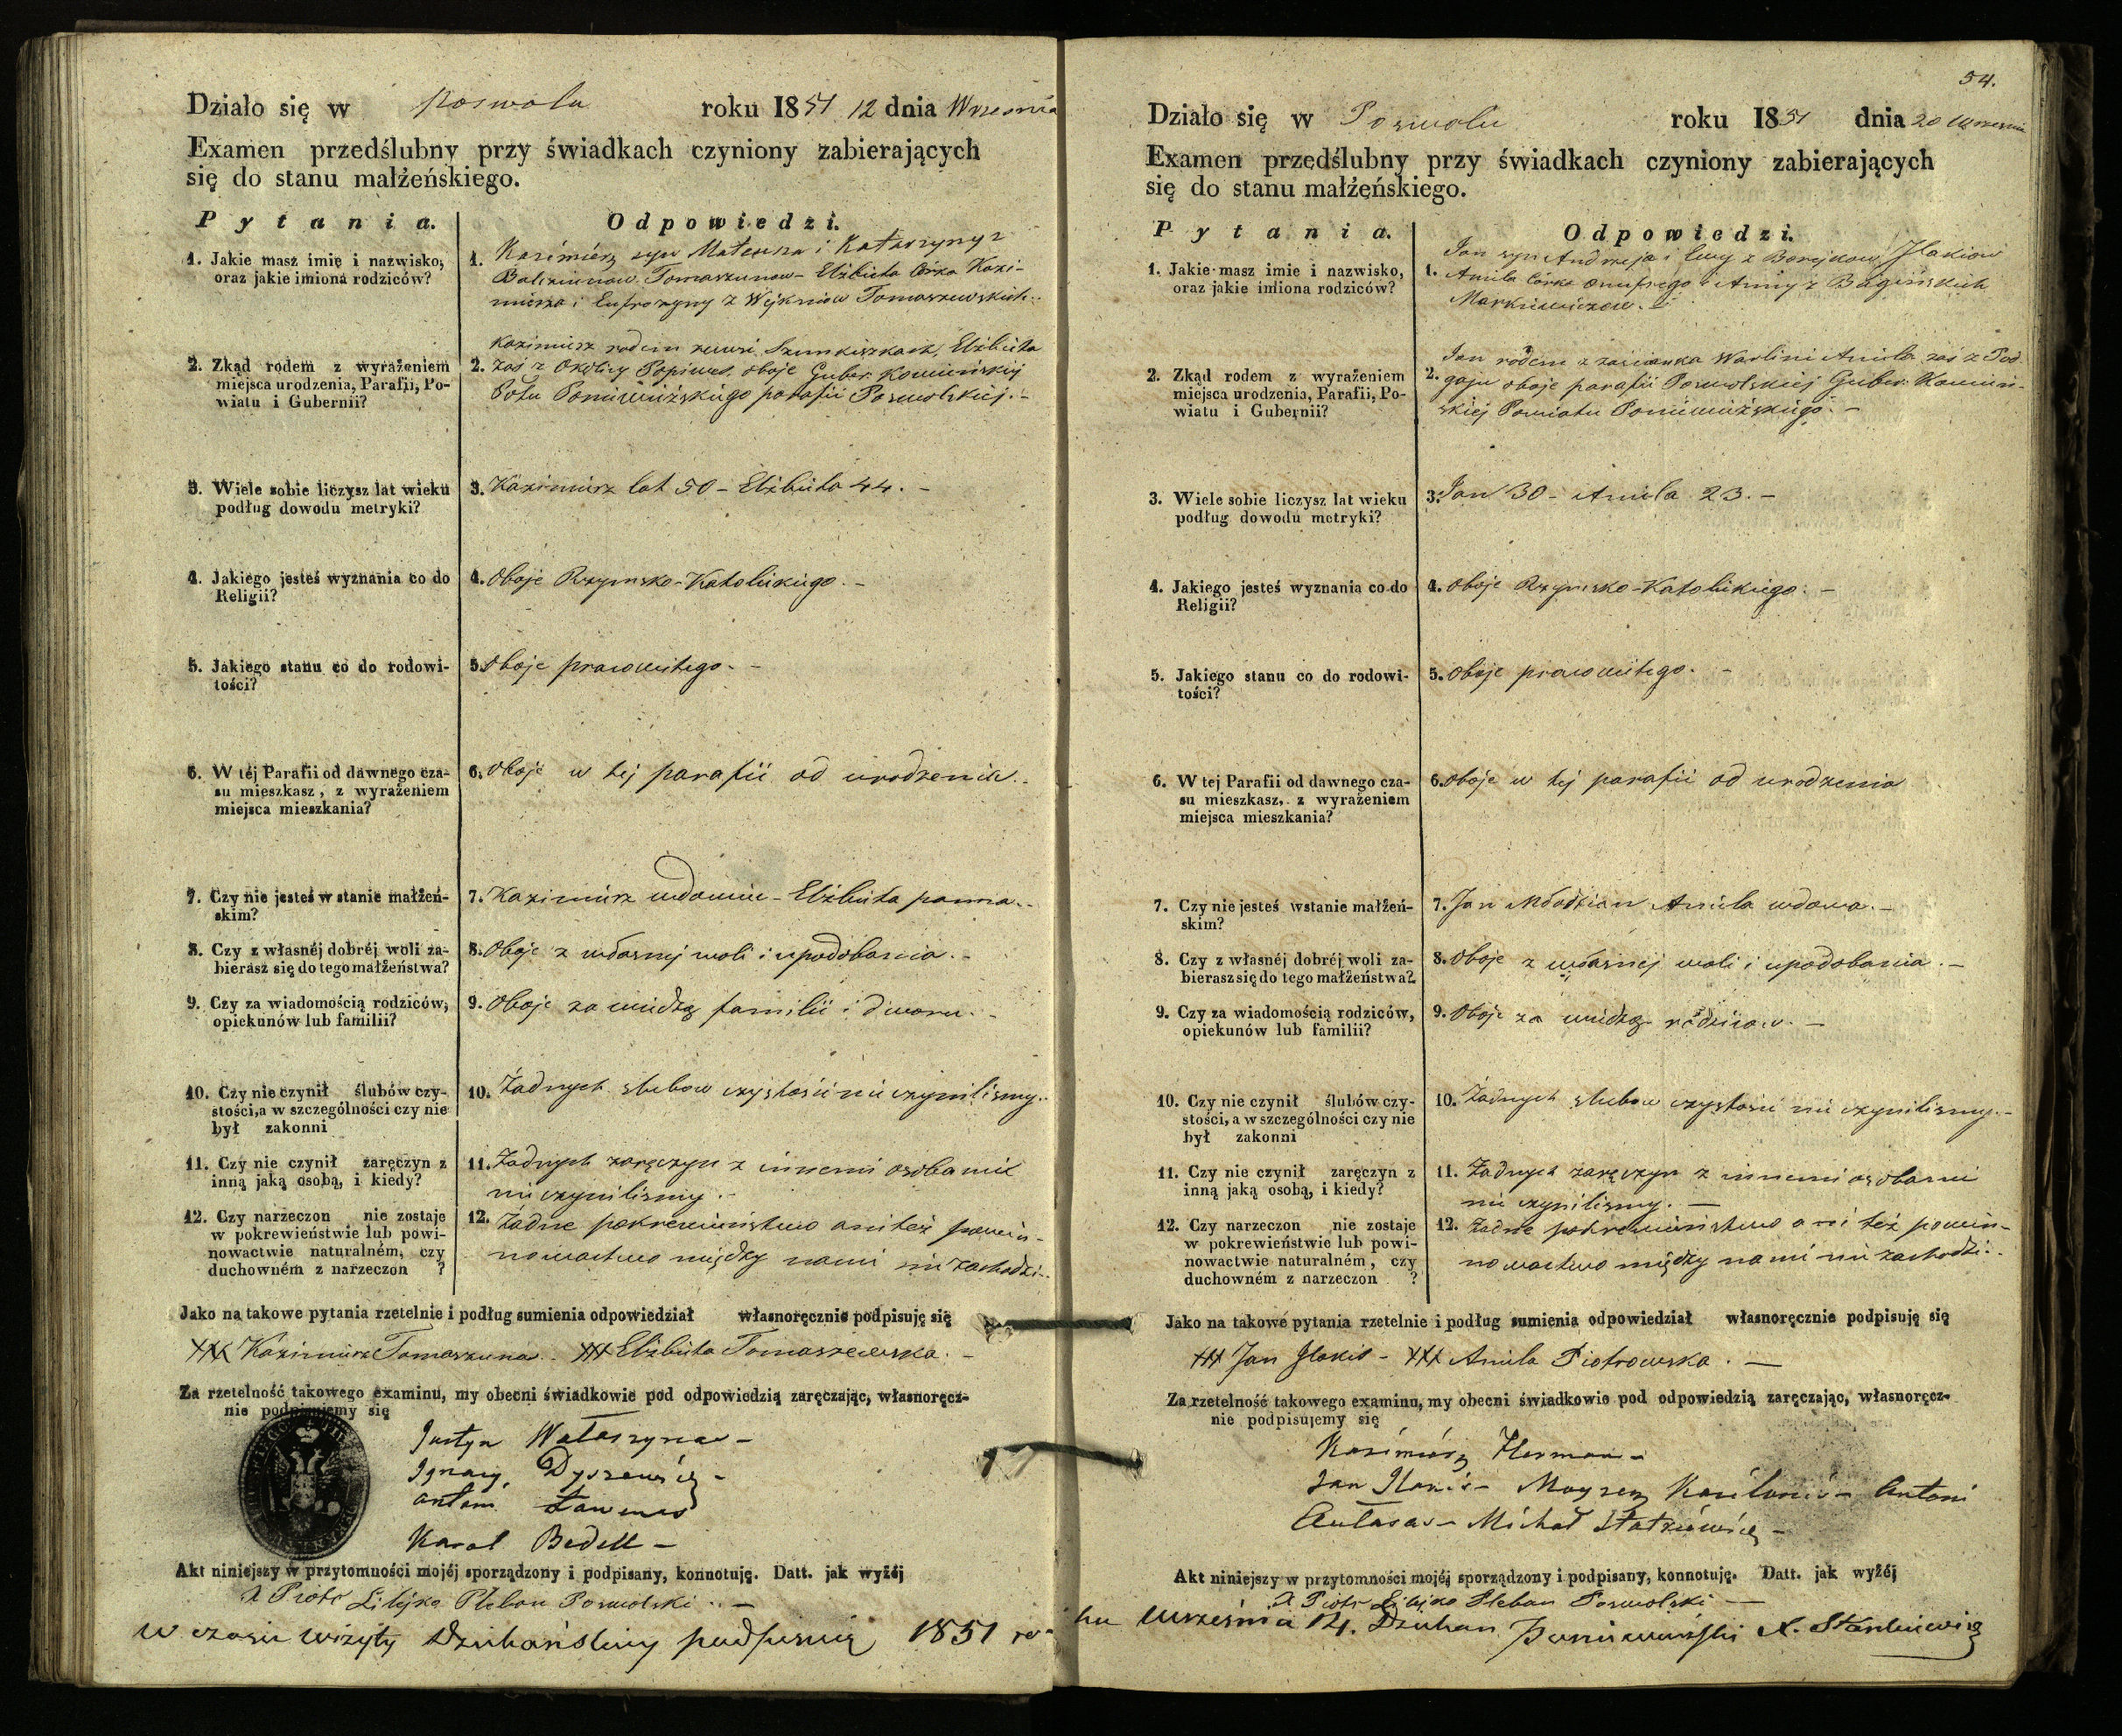 Działo się w Poswolu roku 1851 12 dnia Wrzesnia
Examen przedślubny przy świadkach czyniony zabierających
się do stanu małżeńskiego.
Pytania. Odpowiedzi.
1. Jakie masz imię i nazwisko,
oraz jakie imiona rodziców?
1. Kazimierz syn Mateusza i Katarzyny z
Tomaszunow – Elżbieta córka Kazi-
mierza i Eufrozyny z Tomaszewskich.
2. Zkąd rodem z wyrażeniem
miejsca urodzenia, Parafii, Po-
wiatu i Gubernii?
Kazimierz rodem zewsi Elżbieta
2. zaś z Okolicy oboje Guber. Kowieńskiej
Pottu Poniewiéżskiego parafii Poswolskiej. –
3. Wiele sobie liczysz lat wieku
podług dowodu metryki?
3. Kazimierz lat 50 – Elżbieta 44. –
4. Jakiego jesteś wyznania co do
Religii?
4. Oboje Rzymsko-Katolickiego. –
5. Jakiego stanu co do rodowi-
tości?
5. Oboje prawowitego. –
6. W téj Parafii od dawnego cza-
su mieszkasz, z wyrażeniem
miejsca mieszkania?
6. Oboje w tej parafii od urodzenia. –
7. Czy nie jesteś w stanie małżeń-
skim?
7. Kazimierz wdowiec – Elżbieta panna. –
8. Czy z własnéj dobréj woli za-
bierasz się do tego małżeństwa?
8. Oboje z własnej woli i upodobania. –
9. Czy za wiadomością rodziców,
opiekunów lub familii?
9. Oboje za wiedzą familii i dworu. –
10. Czy nie czynił ślubów czy-
stości, a w szczególności czy nie
był zakonni
10. Żadnych slubow czystosci nie czynilismy. –
11. Czy nie czynił zaręczyn z
inną jaką osobą, i kiedy?
11. Żadnych zaręczyn z innemi osobami
nie czynilismy. –
12. Czy narzeczon nie zostaje
w pokrewieństwie lub powi-
nowactwie naturalném, czy
duchowném z narzeczon ?
12. Żadne pokrewieństwo ani też powin-
nowactwo między nami nie zachodzi. –
Jako na takowe pytania rzetelnie i podług sumienia odpowiedział własnoręcznie podpisuję się
XXX Kazimierz Tomaszunas – XXX Elżbieta Tomaszewska. –
Za rzetelność takowego examinu, my obecni świadkowie pod odpowiedzią zaręczając, własnoręcz-
nie podpisujemy się
Justyn –
Ignacy –
Antoni
Karol Bedell –
Akt niniejszy w przytomności mojéj sporządzony i podpisany, konnotuję. Datt. jak wyżéj
X Piotr Lilejko Pleban Poswolski –
w czasie wizyty Dziekańskiey podpisuię 1851 ro-
54.
Działo się w Poswolu roku 1851 dnia 20 Wrzesnia
Examen przedślubny przy świadkach czyniony zabierających
się do stanu małżeńskiego.
Pytania. Odpowiedzi.
1. Jakie masz imie i nazwisko,
oraz jakie imiona rodziców?
Jan syn Andrzeja i Ewy z
1. Aniela córka Onufrego i Anny z Bagińskich
2. Zkąd rodem z wyrażeniem
miejsca urodzenia, Parafii, Po-
wiatu i Gubernii?
Jan rodem z zaścianka Aniela zaś z Pod
2. gaju oboje parafii Poswolskiej Guber. Kowień-
skiej Powiatu Poniewiéżskiego. –
3. Wiele sobie liczysz lat wieku
podług dowodu metryki?
3. Jan 30 – Aniela 23. –
4. Jakiego jesteś wyznania co do
Religii?
4. Oboje Rzymsko-Katolickiego. –
5. Jakiego stanu co do rodowi-
tości?
5. Oboje prawowitego. –
6. W tej Parafii od dawnego cza-
su mieszkasz, z wyrażeniem
miejsca mieszkania?
6. Oboje w tej parafii od urodzenia
7. Czy nie jesteś wstanie małżeń-
skim?
7. Jan Młodzian Aniela wdowa. –
8. Czy z własnéj dobréj woli za-
bierasz się do tego małżeństwa?
8. Oboje z własnej woli i upodobania. –
9. Czy za wiadomością rodziców,
opiekunów lub familii?
9. Oboje za wiedzą rodzicow. –
10. Czy nie czynił ślubów czy-
stości, a w szczególności czy nie
był zakonni
10. Żadnych slubow czystosci nie czynilismy. –
11. Czy nie czynił zaręczyn z
inną jaką osobą, i kiedy?
11. Żadnych zaręczyn z innemi osobami
nie czynilismy. –
12. Czy narzeczon nie zostaje
w pokrewieństwie lub powi-
nowactwie naturalném, czy
duchowném z narzeczon ?
12. Żadne pokrewieństwo ani też powin-
nowactwo między nami nie zachodzi. –
Jako na takowe pytania rzetelnie i podług sumienia odpowiedział własnoręcznie podpisuję się
XXX Jan – XXX Aniela Piotrowska. –
Za rzetelność takowego examinu, my obecni świadkowie pod odpowiedzią zaręczając, własnoręcz-
nie podpisujemy się
Kazimierz Herman –
Jan – Antoni
– Michał –
Akt niniejszy w przytomności mojéj sporządzony i podpisany, konnotuję. Datt. jak wyżéj
X Piotr Lilejko Pleban Poswolski –
ku Wrzesnia 24. Dziekan Poniewieżski X. Stankiewicz